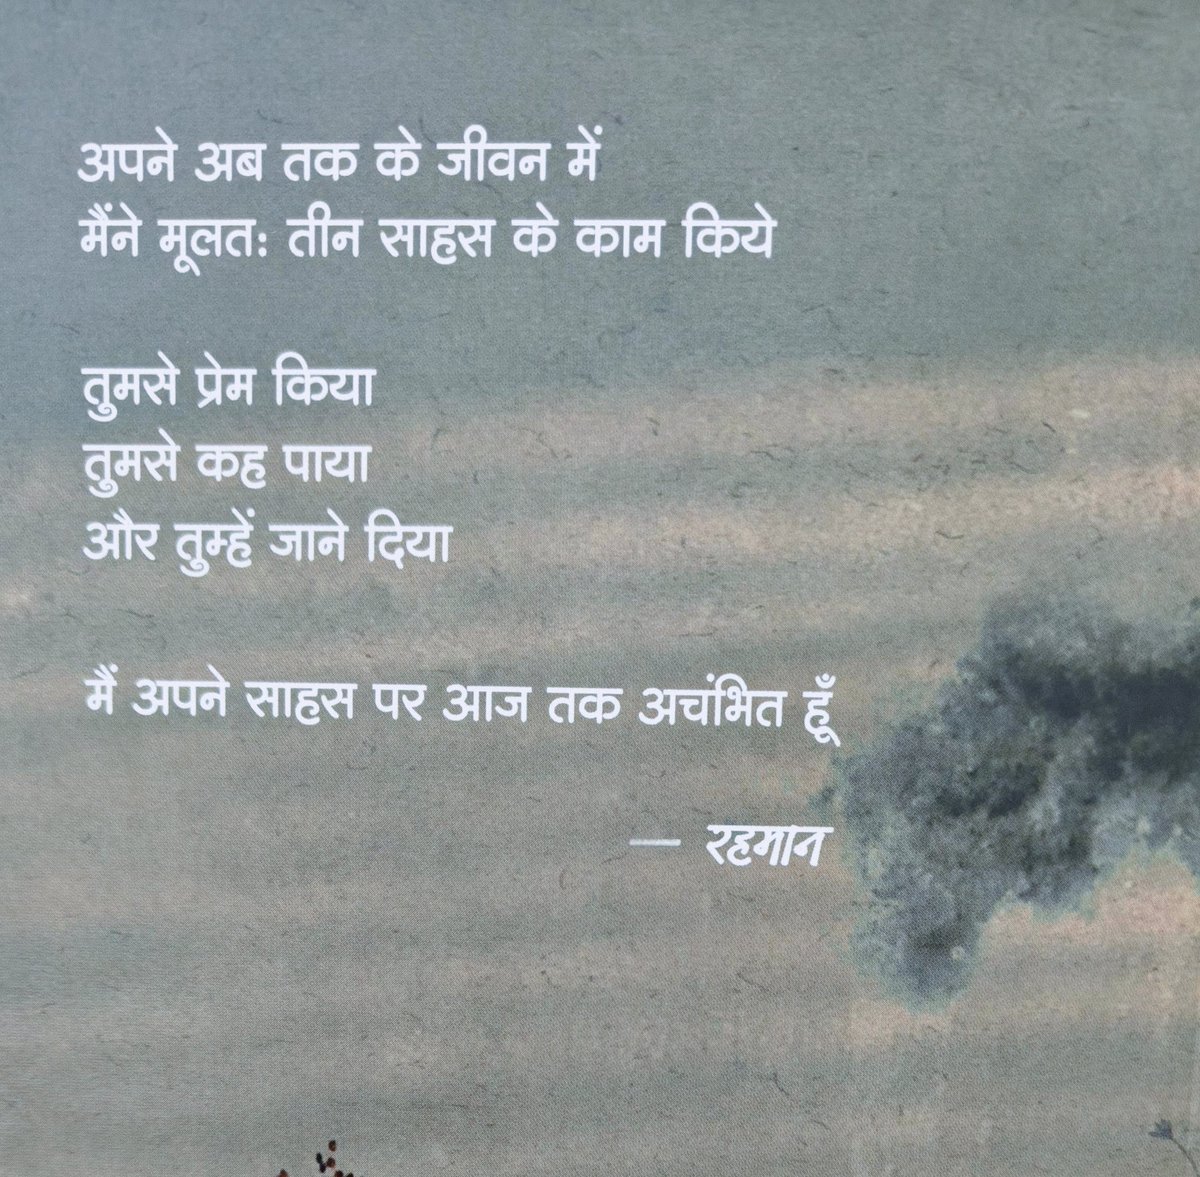 अपने अब तक के जीवन में
मैंने मूलतः तीन साहस के काम किये
तुमसे प्रेम किया
तुमसे कह पाया
और तुम्हें जाने दिया
मैं अपने साहस पर आज तक अचंभित हूँ
— रहमान